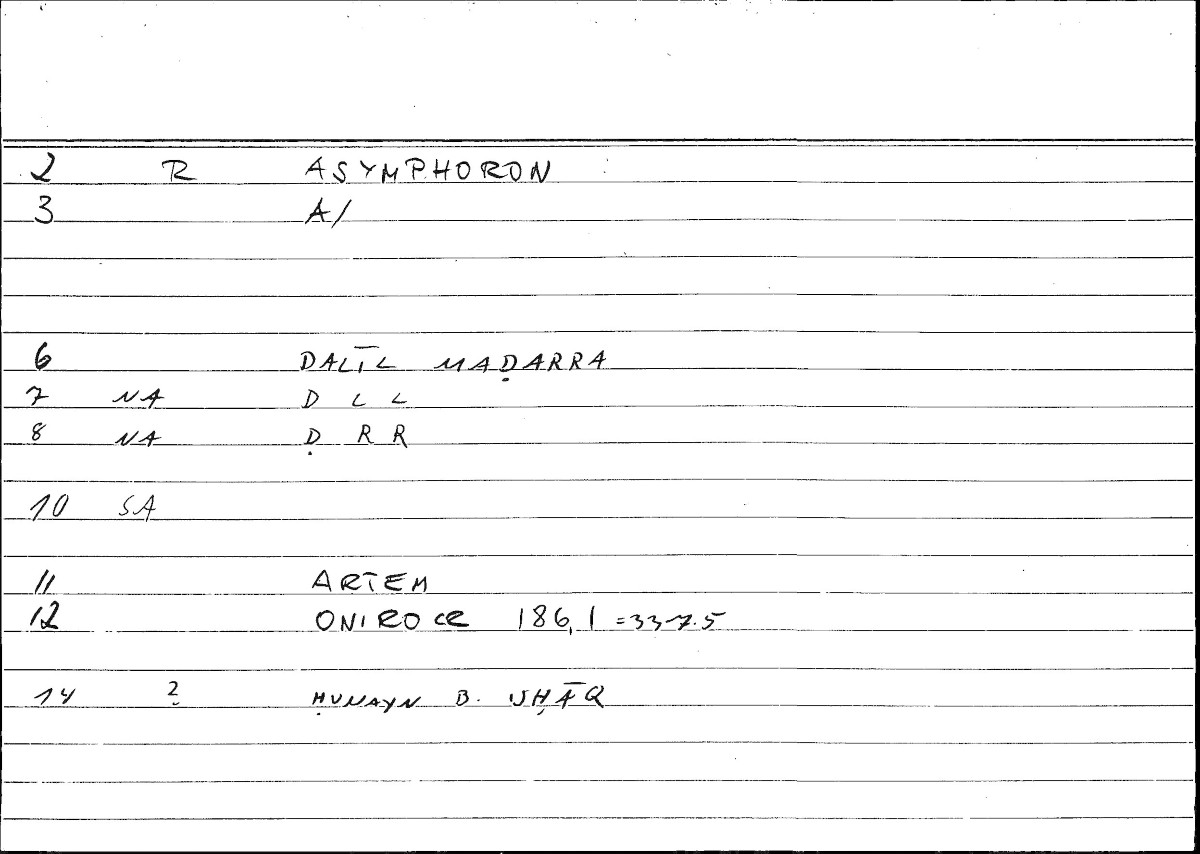 2 R ASYMPHORON
3 A/
6 DALĪL MAḌARRA
7 NA D L L
8 NA Ḍ R R
10 SA
11 ARTEM
12 ONIROCR 186,1 =337.5
14 2 ḤUNAYN B. ISḤĀQ